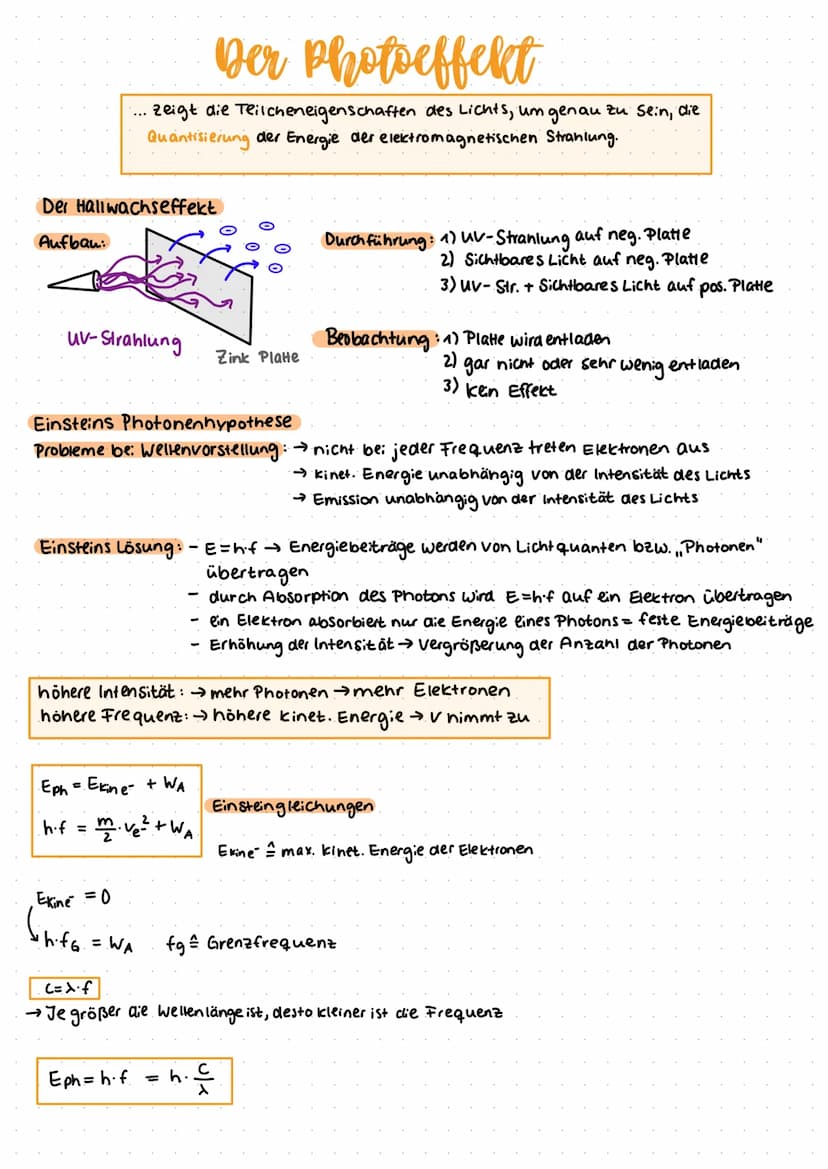 Der Photoeffekt
... zeigt die Teilcheneigenschaften des Lichts, um genau zu sein, die
Quantisierung der Energie der elektromagnetischen Strahlung.
Der Hallwachseffekt
Aufbau:
UV-Strahlung
Zink Platte
Durchführung: 1) UV-Strahlung auf neg. Platte
2) Sichtbares Licht auf neg. Platte
3) UV-Str. + Sichtbares Licht auf pos. Platte
Beobachtung: 1) Platte wird entladen
2) gar nicht oder sehr wenig entladen
3) kein Effekt
Einsteins Photonenhypothese
Probleme bei Wellenvorstellung: → nicht bei jeder Frequenz treten Elektronen aus
→ kinet. Energie unabhängig von der Intensität des Lichts
→ Emission unabhängig von der Intensität des Lichts
Einsteins Lösung: - E=h·f → Energiebeiträge werden von Lichtquanten bzw. „Photonen"
übertragen
- durch Absorption des Photons wird E=h·f auf ein Elektron übertragen
- ein Elektron absorbiert nur die Energie eines Photons = feste Energiebeiträge
- Erhöhung der Intensität → Vergrößerung der Anzahl der Photonen
höhere Intensität: → mehr Photonen → mehr Elektronen
höhere Frequenz: → höhere kinet. Energie → v nimmt zu
Eph = Ekine- + WA
h·f = m/2 · ve-² + WA
Einsteingleichungen
Ekine- ≙ max. kinet. Energie der Elektronen
Ekine- = 0
h·fG = WA fg ≙ Grenzfrequenz
c=λ·f
→ Je größer die Wellenlänge ist, desto kleiner ist die Frequenz
Eph = h·f = h · c/λ